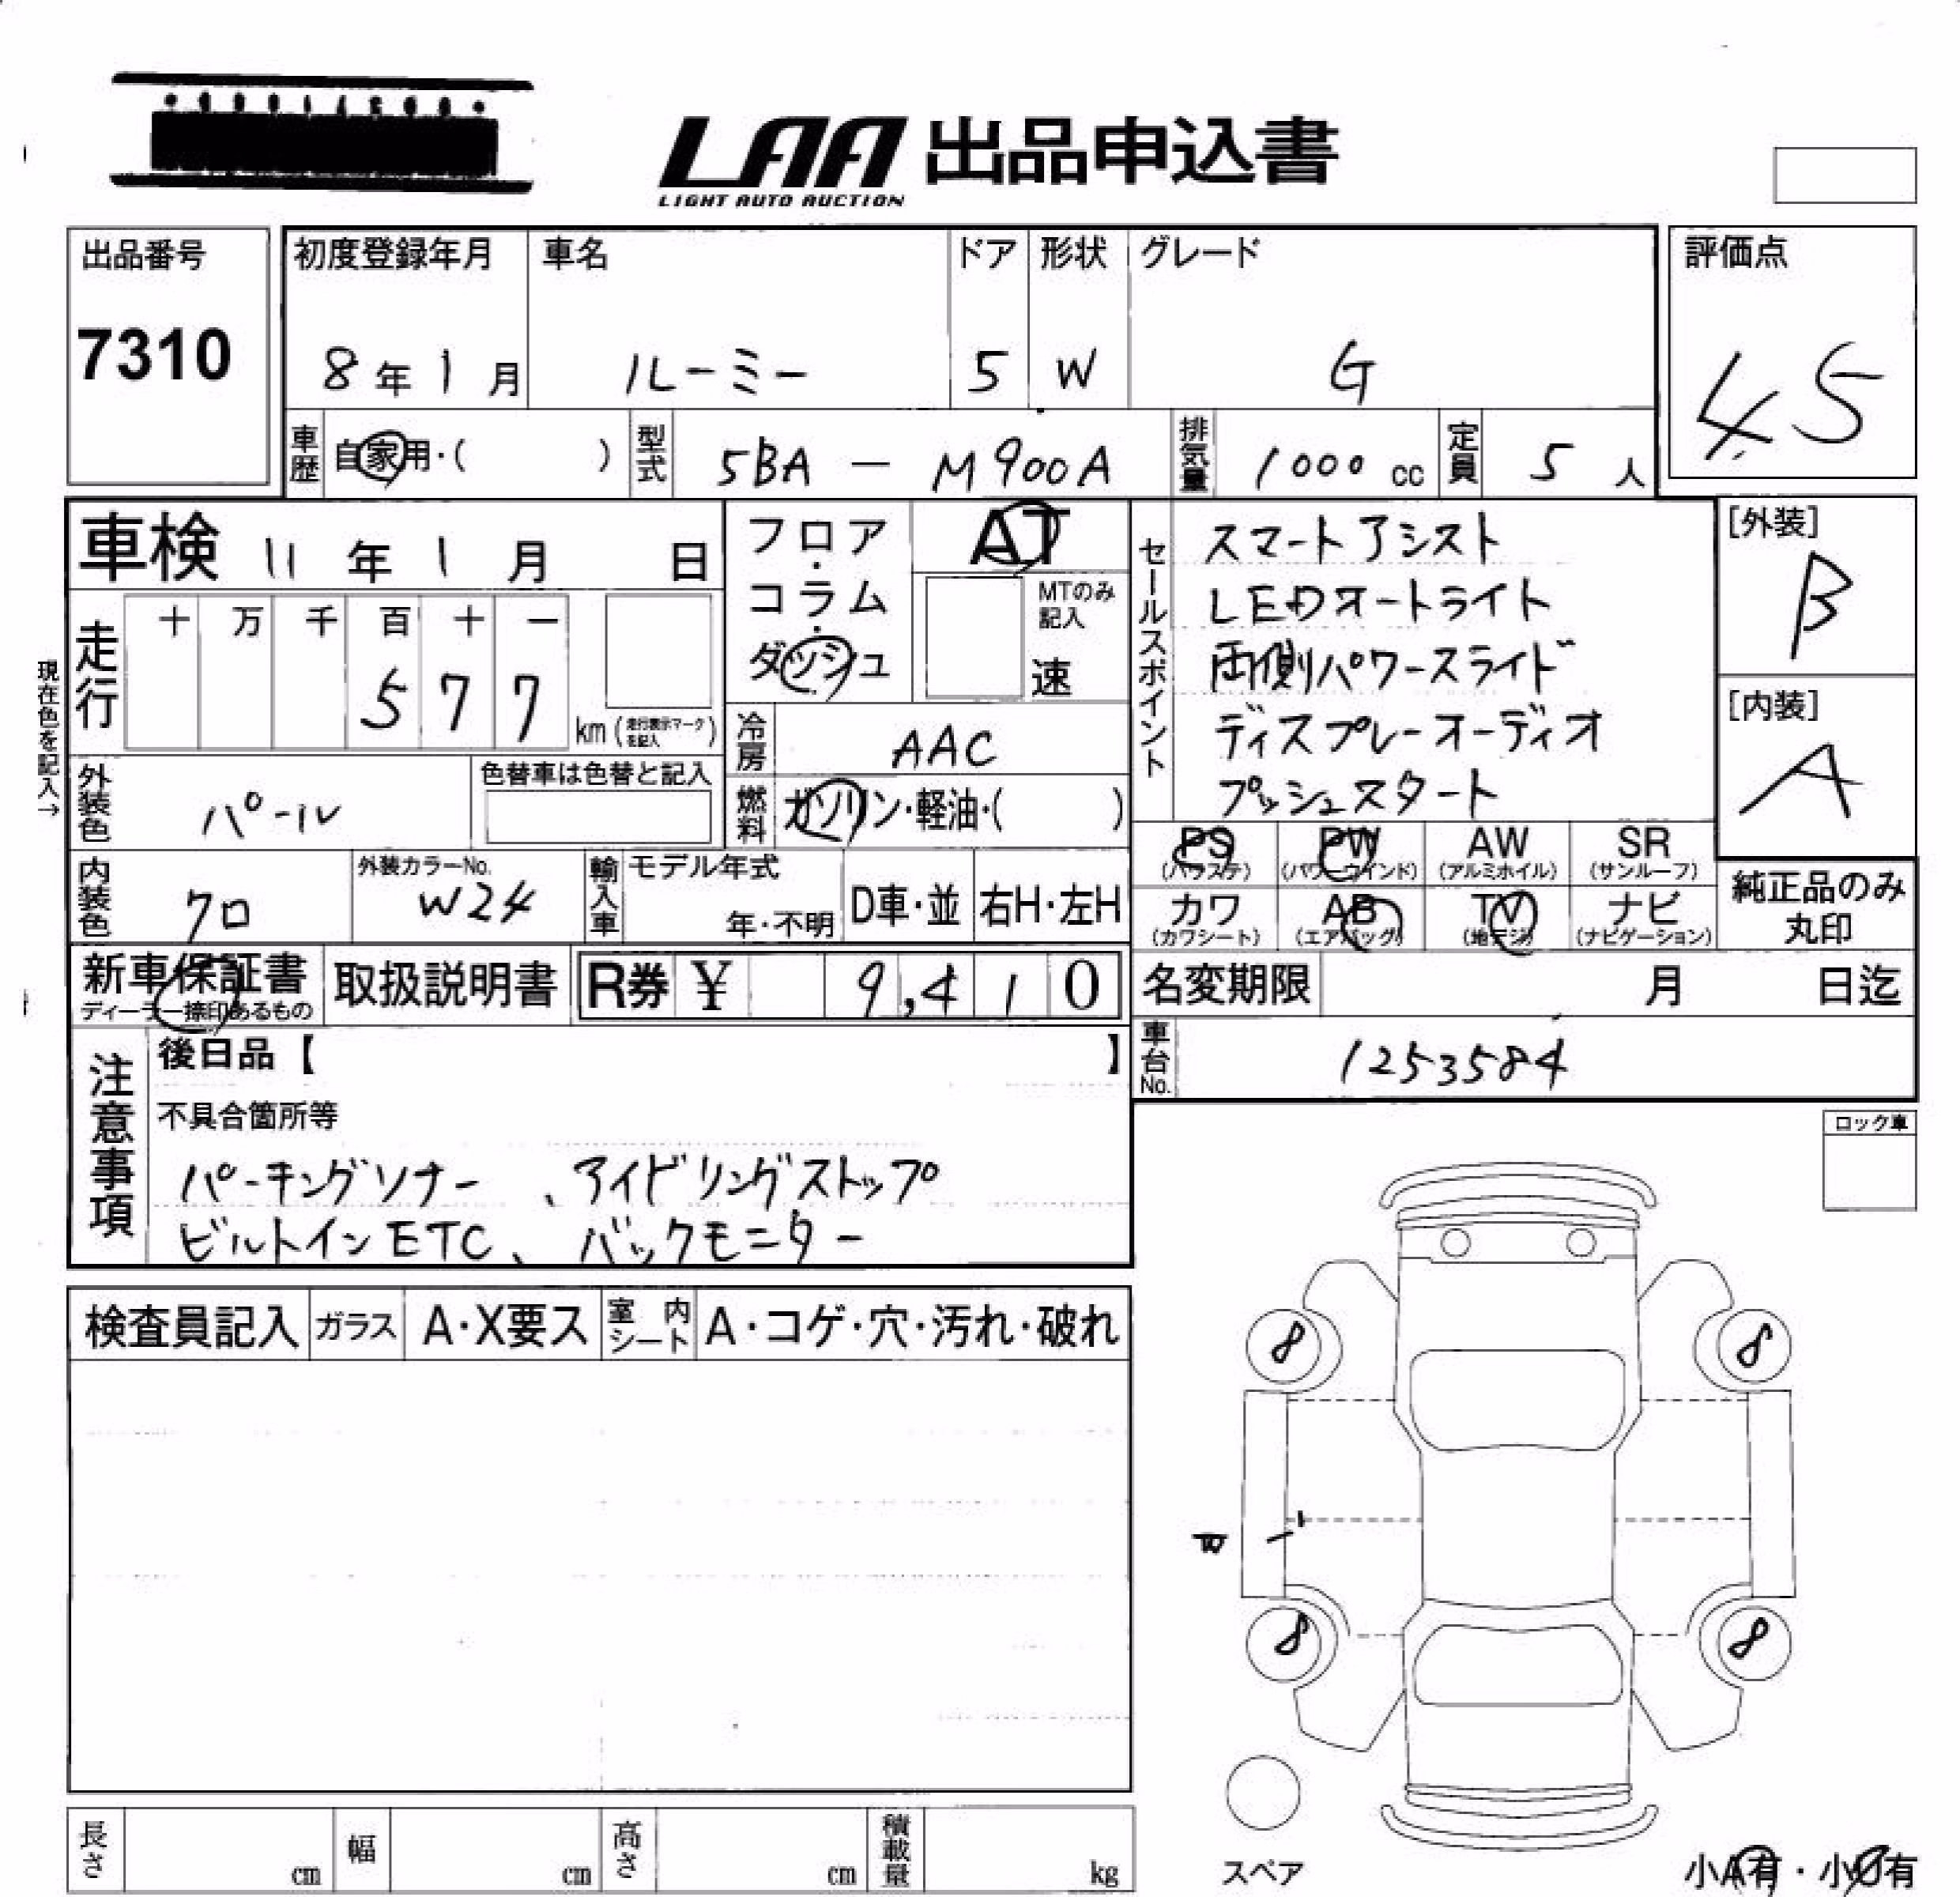 LAA 出品申込書
LIGHT AUTO AUCTION
出品番号
7310
初度登録年月
8年1月
車名
ルーミー
ドア
5
形状
W
グレード
G
評価点
4.5
車歴
自家用・( )
型式
5BA - M900A
排気量
1000 cc
定員
5人
車検 11年1月 日
フロア・コラム・ダッシュ
AT
MTのみ記入
速
セールスポイント
スマートアシスト
LEDオートライト
両側パワースライド
ディスプレーオーディオ
プッシュスタート
[外装]
B
[内装]
A
現在色を記入→
走行
十 万 千 百 十 一
577
km (走行表示マークを記入)
冷房
AAC
外装色
パール
色替車は色替と記入
燃料
ガソリン・軽油・( )
PS
(パワステ)
PW
(パワーウインド)
AW
(アルミホイル)
SR
(サンルーフ)
内装色
クロ
外装カラーNo.
W24
輸入車
モデル年式
年・不明
D車・並
右H・左H
カワ
(カワシート)
AB
(エアバッグ)
TV
(地デジ)
ナビ
(ナビゲーション)
純正品のみ丸印
新車保証書
ディーラー捺印あるもの
取扱説明書
R券 ¥ 9,410
名変期限
月 日迄
車台No.
1253584
注意事項
後日品【 】
不具合箇所等
パーキングソナー、アイドリングストップ
ビルトインETC、バックモニター
ロック車
検査員記入
ガラス
A・X要ス
室内シート
A・コゲ・穴・汚れ・破れ
8
8
8
8
長さ
cm
幅
cm
高さ
cm
積載量
kg
スペア
小A有・小U有